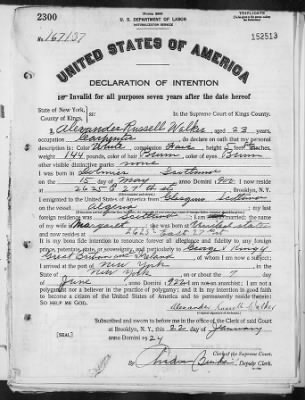 2300
TRIPLICATE
U. S. DEPARTMENT OF LABOR
NATURALIZATION SERVICE
No. 167137
152513
UNITED STATES OF AMERICA
DECLARATION OF INTENTION
Invalid for all purposes seven years after the date hereof
State of New York,
County of Kings.
ss:
In the Supreme Court of Kings County.
I, Alexander Russell Walker, aged 23 years,
occupation Carpenter, do declare on oath that my personal
description is: Color White, complexion, height 5 feet inches,
weight 144 pounds, color of hair Brown, color of eyes Brown
other visible distinctive marks none
I was born in Scotland
on the 15 day of May, anno Domini 900; I now reside
at 2625 E 27th St, Brooklyn, N. Y.
I emigrated to the United States of America from Glasgow Scotland
on the vessel Algeria; my last
foreign residence was Scotland; I am married; the name
of my wife is Margaret; she was born at United States
and now resides at 2625 East 27 St
It is my bona fide intention to renounce forever all allegiance and fidelity to any foreign
prince, potentate, state, or sovereignty, and particularly to George V King of
Great Britain and Ireland, of whom I am now a subject;
I arrived at the port of New York, in the
State of New York, on or about the 7 day
of June, anno Domini 1922; I am not an anarchist; I am not a
polygamist nor a believer in the practice of polygamy; and it is my intention in good faith
to become a citizen of the United States of America and to permanently reside therein:
SO HELP ME GOD.
Alexander Russell Walker
Subscribed and sworn to before me in the office of the Clerk of said Court
at Brooklyn, N. Y., this 22 day of January
anno Domini 1924
[SEAL]
Clerk of the Supreme Court.
By, Deputy Clerk.